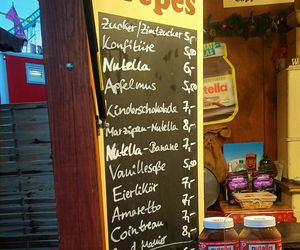 repes
Zucker/Zimtzucker 5,-
Konfitüre 5,50
Nutella 6,-
Apfelmus 5,50
Kinderschokolade 7,-
Marzipan-Nutella 8,-
Nutella-Banane 7,-
Vanillesoße 5,50
Eierlikör 7,-
Amaretto 7,-
Cointreau
nutella
nutella
nutella